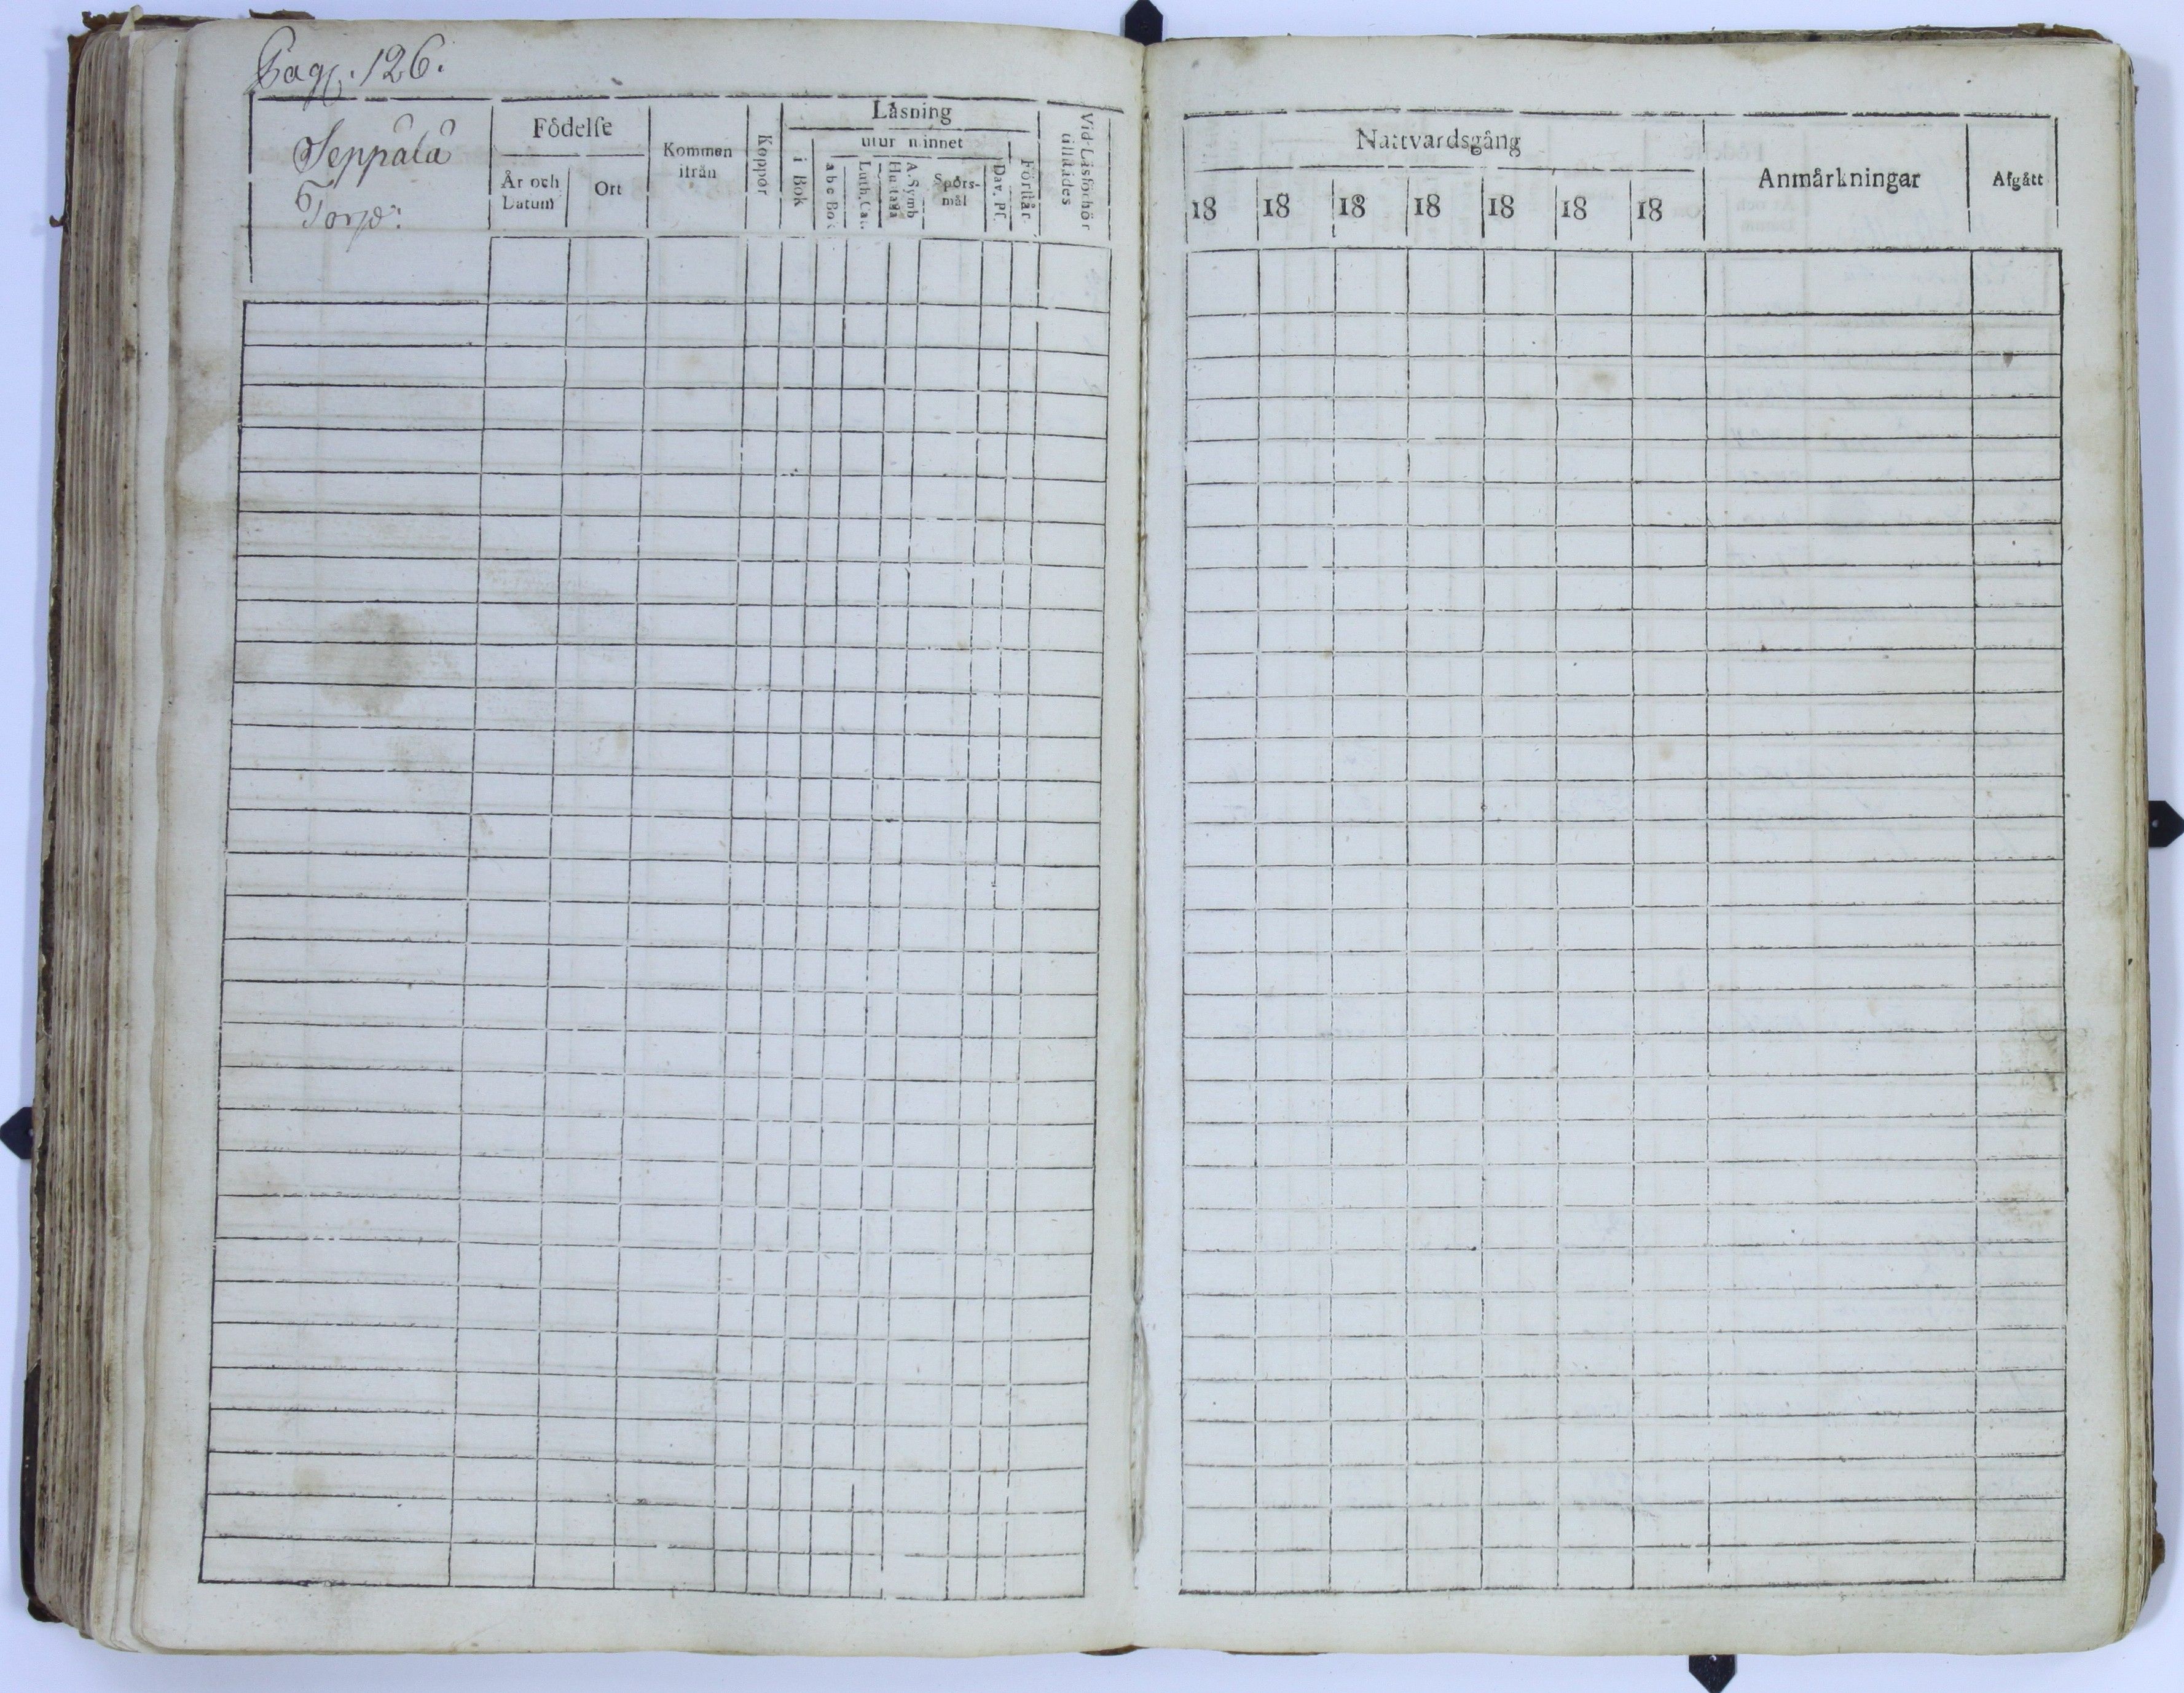 Pag. 126.
Seppälä
Torp:
Födelſe
År och
Datum
Ort
Kommen
ifrån
Koppor
Läsning
i Bok
utur minnet
abc Bok
Luth. Ca.
Huſtafla
A. Symb
Spörs-
mål
Dav. Pſ.
Förſtår
Vid Läsförhör
tillſtådes
Nattvardsgång
18 18 18 18 18 18 18
Anmärkningar
Afgått